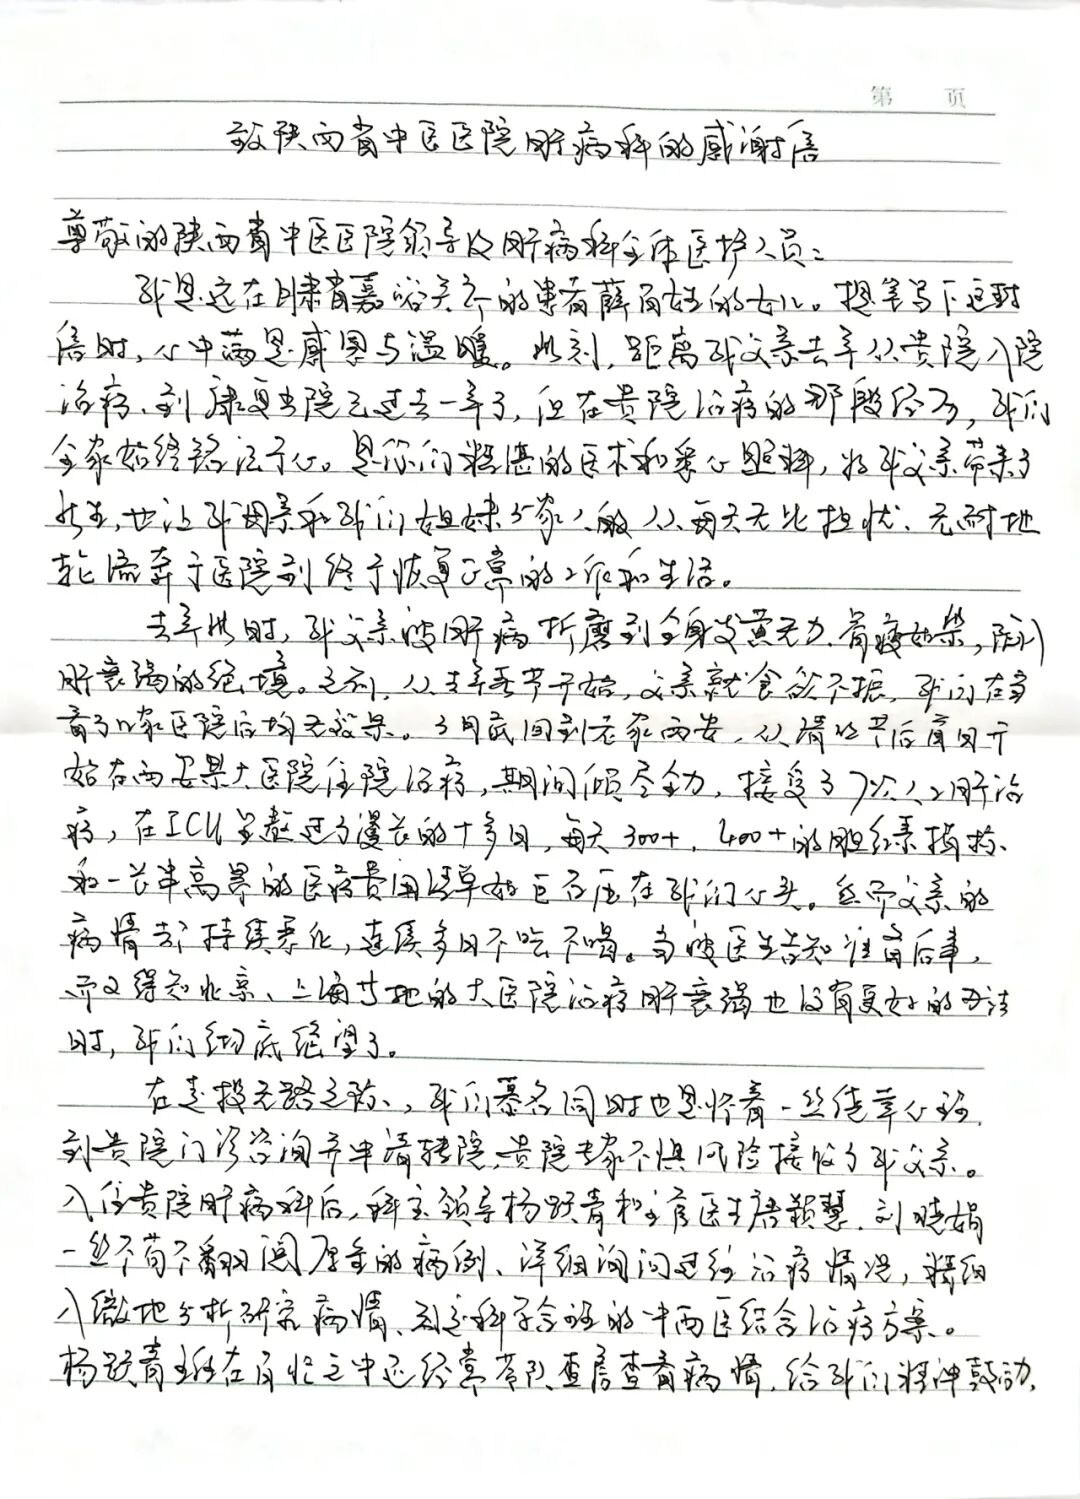 第 页
致陕西省中医医院肝病科的感谢信
尊敬的陕西省中医医院领导及肝病科全体医护人员：
我是远在甘肃省嘉峪关市的患者薛百姓的女儿。提笔写下这封
信时，心中满是感恩与温暖。此刻，距离我父亲去年从贵院入院
治病、到康复出院已过去一年了，但在贵院治病的那段经历，我们
全家始终铭记于心。是你们精湛的医术和悉心照料，将我父亲带来了
新生，也让我母亲和我们姐妹5家人的人从每天无比担忧、无助地
轮流奔于医院到终于恢复正常的工作和生活。
去年此时，我父亲被肝病折磨到全身发黄无力、骨瘦如柴，陷入
肝衰竭的绝境。之前，从去年春节开始，父亲就食欲不振，我们在当地
看了几家医院后均无效果。3月底回到老家西安，从清明节后首日开
始在西安某大医院住院治疗，期间倾尽全力，接受了7次人工肝治
疗，在ICU里熬过了漫长的十多日，每天300+、400+的胆红素指标、
和一长串高昂的医疗费用清单如巨石压在我们心头。然而父亲的
病情却持续恶化，连续多日不吃不喝。当被医生告知准备后事，
而又得知北京、上海等地的大医院治疗肝衰竭也没有更好的办法
时，我们彻底绝望了。
在走投无路之际，我们慕名同时也是怀着一丝侥幸心理，
到贵院门诊咨询并申请转院，贵院专家不惧风险接收了我父亲。
入住贵院肝病科后，科主领导杨跃青和主管医生唐颖慧、刘晓娟
一丝不苟不翻阅厚重的病例、详细询问过往治疗情况，精细
入微地分析研究病情、制定科学合理的中西医结合治疗方案。
杨跃青主任在百忙之中还经常带队查房查看病情，给我们精神鼓励，